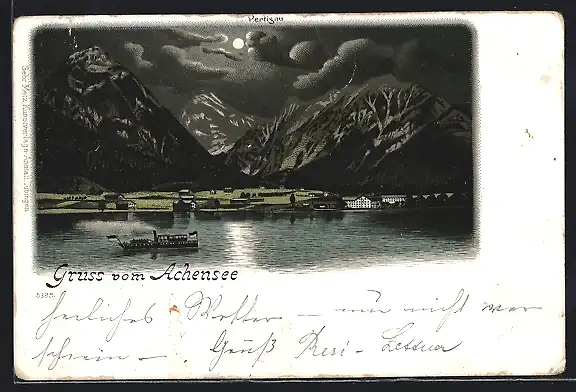 Pertisau
Gebr. Metz, Kunstverlags-Anstalt, Tübingen.
Gruss vom Achensee
5395.
herrliches Wetter – nur nicht vor
schrein – Gruß Resi –